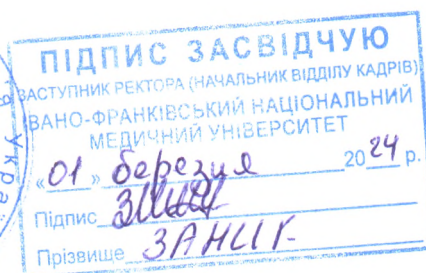 ПІДПИС ЗАСВІДЧУЮ
ЗАСТУПНИК РЕКТОРА (НАЧАЛЬНИК ВІДДІЛУ КАДРІВ)
ВАНО-ФРАНКІВСЬКИЙ НАЦІОНАЛЬНИЙ
МЕДИЧНИЙ УНІВЕРСИТЕТ
«01» березня 2024 р.
Підпис
Прізвище
Украї